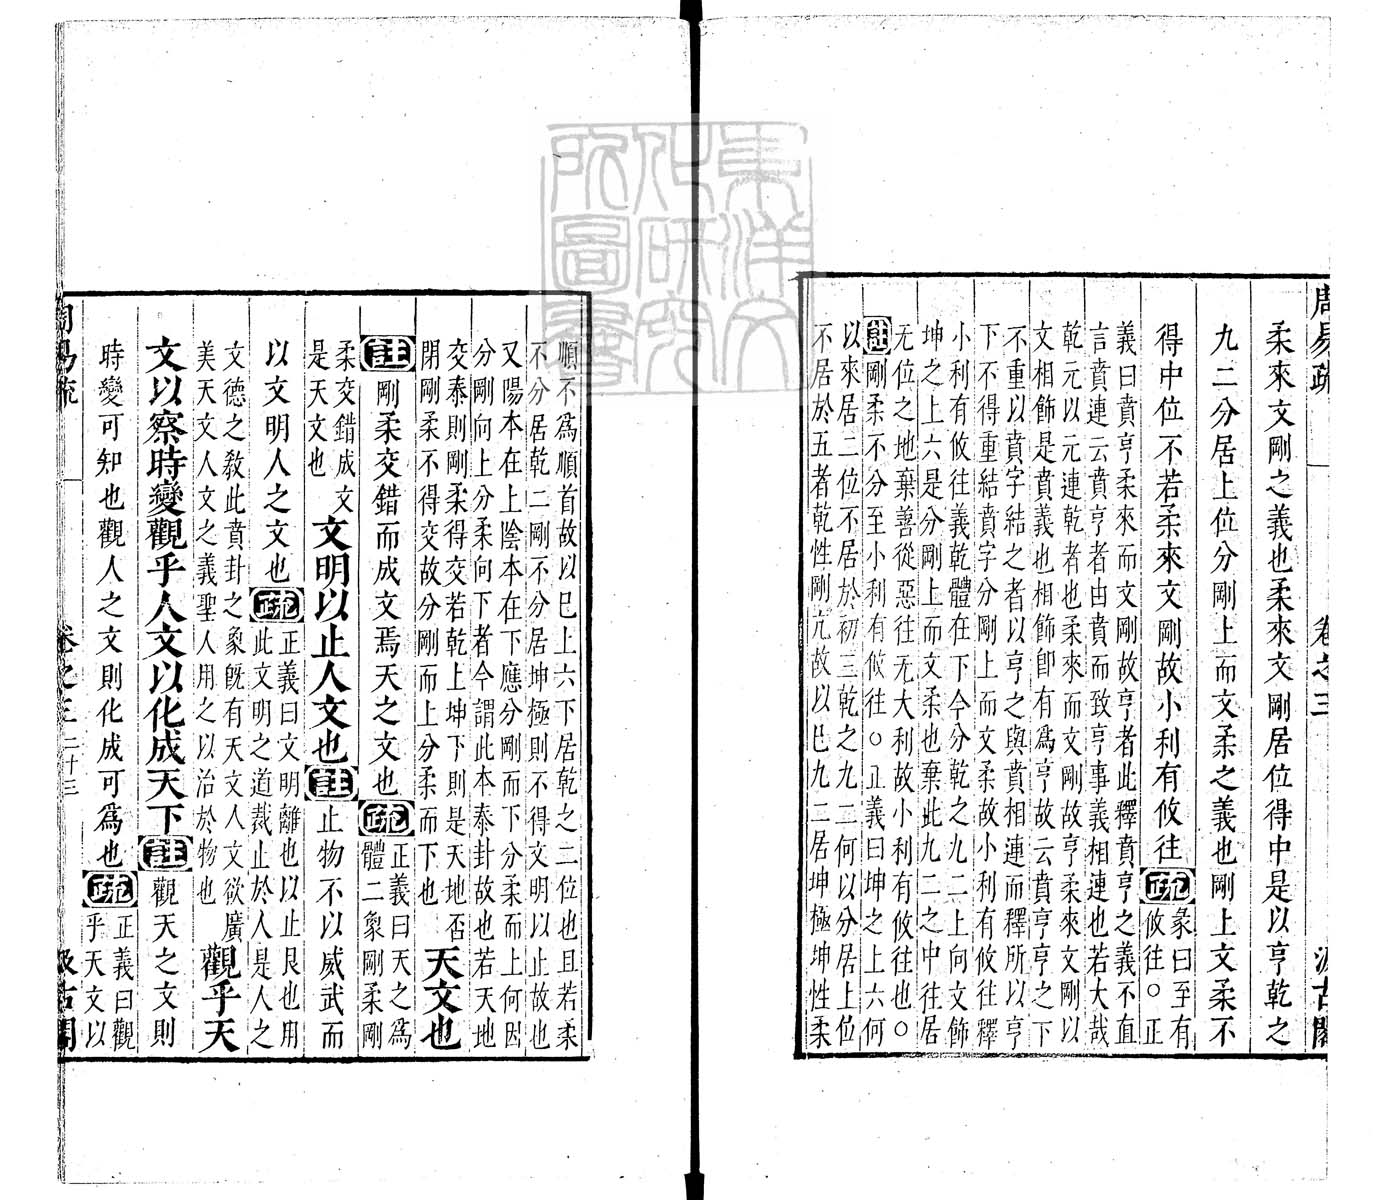 周易疏
卷之三
汲古閣
柔來文剛之義也柔來文剛居位得中是以亨乾之
九二分居上位分剛上而文柔之義也剛上文柔不
得中位不若柔來文剛故小利有攸往疏彖曰至有
攸往○正
義曰賁亨柔來而文剛故亨者此釋賁亨之義不直
言賁連云賁亨者由賁而致亨事義相連也若大哉
乾元以元連乾者也柔來而文剛故亨柔來文剛以
文相飾是賁義也相飾即有爲亨故云賁亨亨之下
不重以賁字結之者以亨之與賁相連而釋所以亨
下不得重結賁字分剛上而文柔故小利有攸往釋
小利有攸往義乾體在下今分乾之九二上向文飾
坤之上六是分剛上而文柔也棄此九二之中往居
无位之地棄善從惡往无大利故小利有攸往也○
註剛柔不分至小利有攸往○正義曰坤之上六何
以來居二位不居於初三乾之九二何以分居上位
不居於五者乾性剛亢故以己九二居坤極坤性柔
順不爲順首故以己上六下居乾之二位也且若柔
不分居乾二剛不分居坤極則不得文明以止故也
又陽本在上陰本在下應分剛而下分柔而上何因
分剛向上分柔向下者今謂此本泰卦故也若天地
交泰則剛柔得交若乾上坤下則是天地否
閉剛柔不得交故分剛而上分柔而下也
天文也
註剛柔交錯而成文焉天之文也疏正義曰天之爲
體二象剛柔剛
柔交錯成文
是天文也
文明以止人文也註止物不以威武而
以文明人之文也疏正義曰文明離也以止艮也用
此文明之道裁止於人是人之
文德之敎此賁卦之象旣有天文人文欲廣
美天文人文之義聖人用之以治於物也
觀乎天
文以察時變觀乎人文以化成天下註觀天之文則
時變可知也觀人之文則化成可爲也疏正義曰觀
乎天文以
周易疏
卷之三
二十三
汲古閣
東洋文
化研究
所圖書